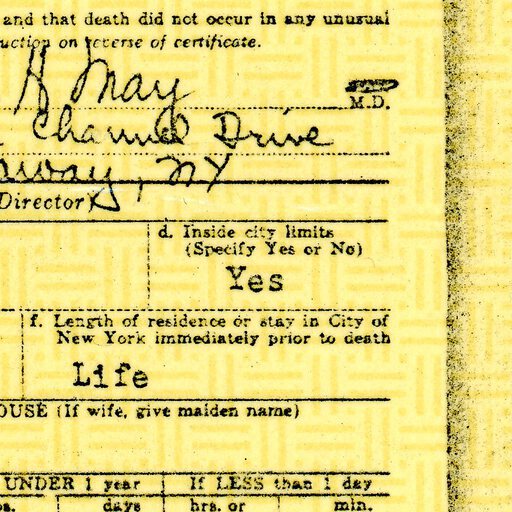 and that death did not occur in any unusual
uction on reverse of certificate.
H May
M.D.
Channel Drive
away, NY
Director)
d. Inside city limits
(Specify Yes or No)
Yes
f. Length of residence or stay in City of
New York immediately prior to death
Life
OUSE (If wife, give maiden name)
UNDER 1 year If LESS than 1 day
os. days hrs. or min.